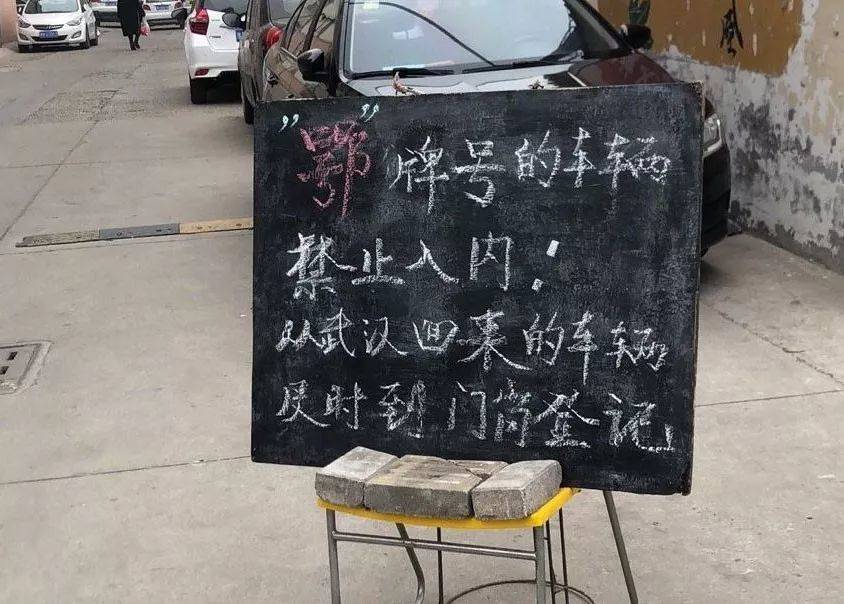 ”鄂”牌号的车辆
禁止入内：
从武汉回来的车辆
及时到门岗登记」